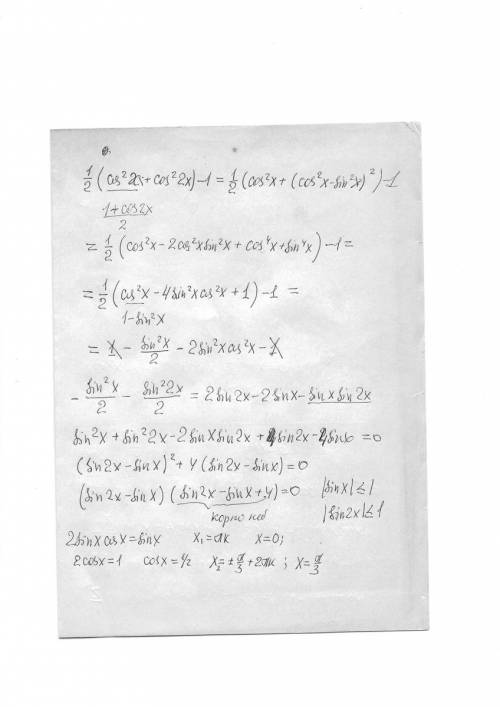 1/2 (cos²x + cos²2x) - 1 = 1/2 (cos²x + (cos²x - sin²x)²) - 1
1+cos2x / 2
= 1/2 (cos²x - 2cos²x sin²x + cos⁴x + sin⁴x) - 1 =
= 1/2 (cos²x - 4sin²x cos²x + 1) - 1 =
1 - sin²x
= 1 - sin²x/2 - 2sin²x cos²x - 1
- sin²x/2 - sin²2x/2 = 2sin2x - 2sinx - sinx sin2x
sin²x + sin²2x - 2sinx sin2x + 4sin2x - 4sinx = 0
(sin2x - sinx)² + 4(sin2x - sinx) = 0
(sin2x - sinx)(sin2x - sinx + 4) = 0 |sinx| ≤ 1
корней нет |sin2x| ≤ 1
2sinx cosx = sinx x₁ = πk x = 0;
2cosx = 1 cosx = 1/2 x₂ = ± π/3 + 2πk ; x = π/3